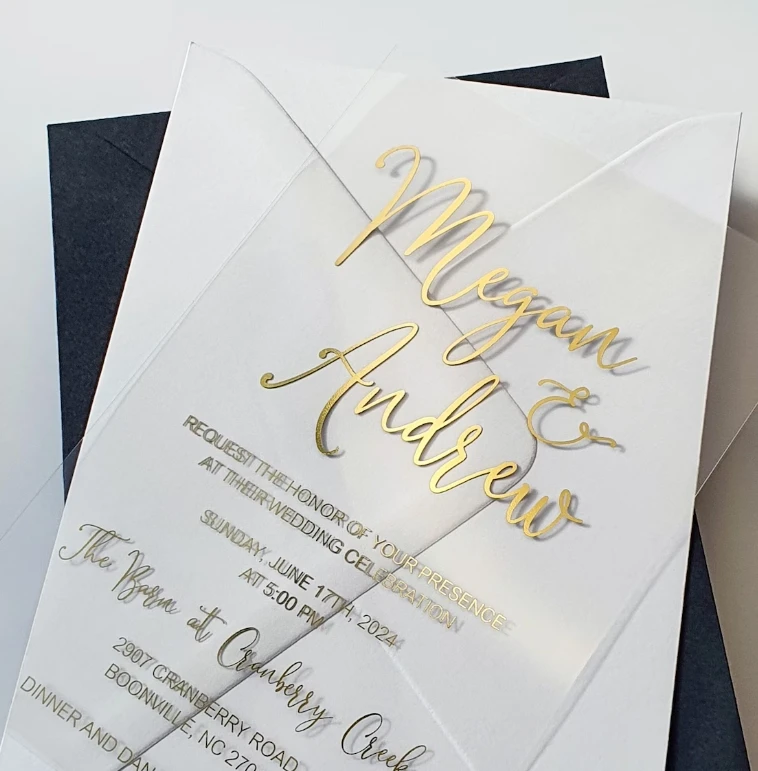 Megan
&
Andrew
REQUEST THE HONOR OF YOUR PRESENCE
AT THEIR WEDDING CELEBRATION
SUNDAY, JUNE 17TH, 2024
AT 5:00 PM
The Barn at Cranberry Creek
2907 CRANBERRY ROAD
BOONVILLE, NC 270
DINNER AND DAN